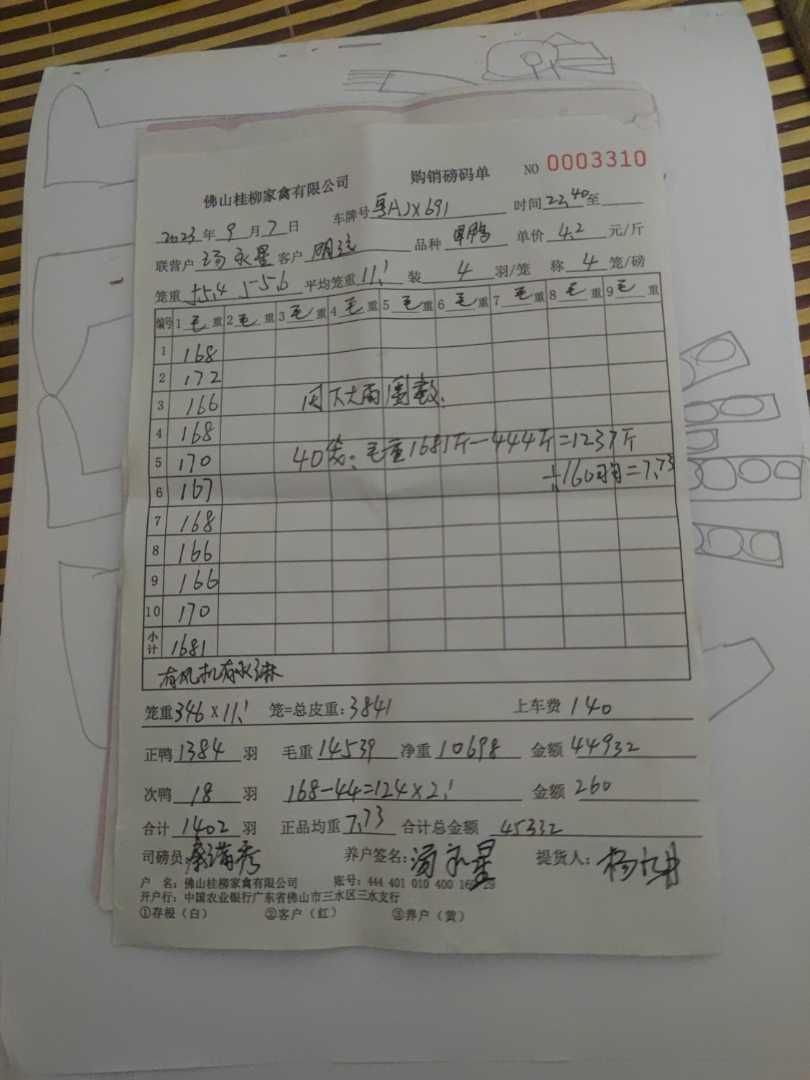 佛山桂柳家禽有限公司 购销磅码单 NO 0003310
2023年9月7日 车牌号粤AJX691 时间22.40至
联营户 永星 客户 明 品种 单价4.2元/斤
笼重 55.4 55.6 平均笼重11.1 装4羽/笼 称4笼/磅
编号 1毛重 2毛重 3毛重 4毛重 5毛重 6毛重 7毛重 8毛重 9毛重
1 168
2 172
3 166 因下大雨 数
4 168
5 170 40笼:毛重1681斤-444斤=1237斤
6 167 ÷160羽=7.73
7 168
8 166
9 166
10 170
小计 1681
有风机有水淋
笼重346×11.1 笼=总皮重:3841 上车费140
正鸭1384羽 毛重14539 净重10698 金额44932
次鸭18羽 168-44=124×2.1 金额260
合计1402羽 正品均重7.73 合计总金额45332
司磅员: 养户签名: 永星 提货人:杨
户 名:佛山桂柳家禽有限公司 账号:444 401 010 400
开户行:中国农业银行广东省佛山市三水区三水支行
①存根(白) ②客户(红) ③养户(黄)